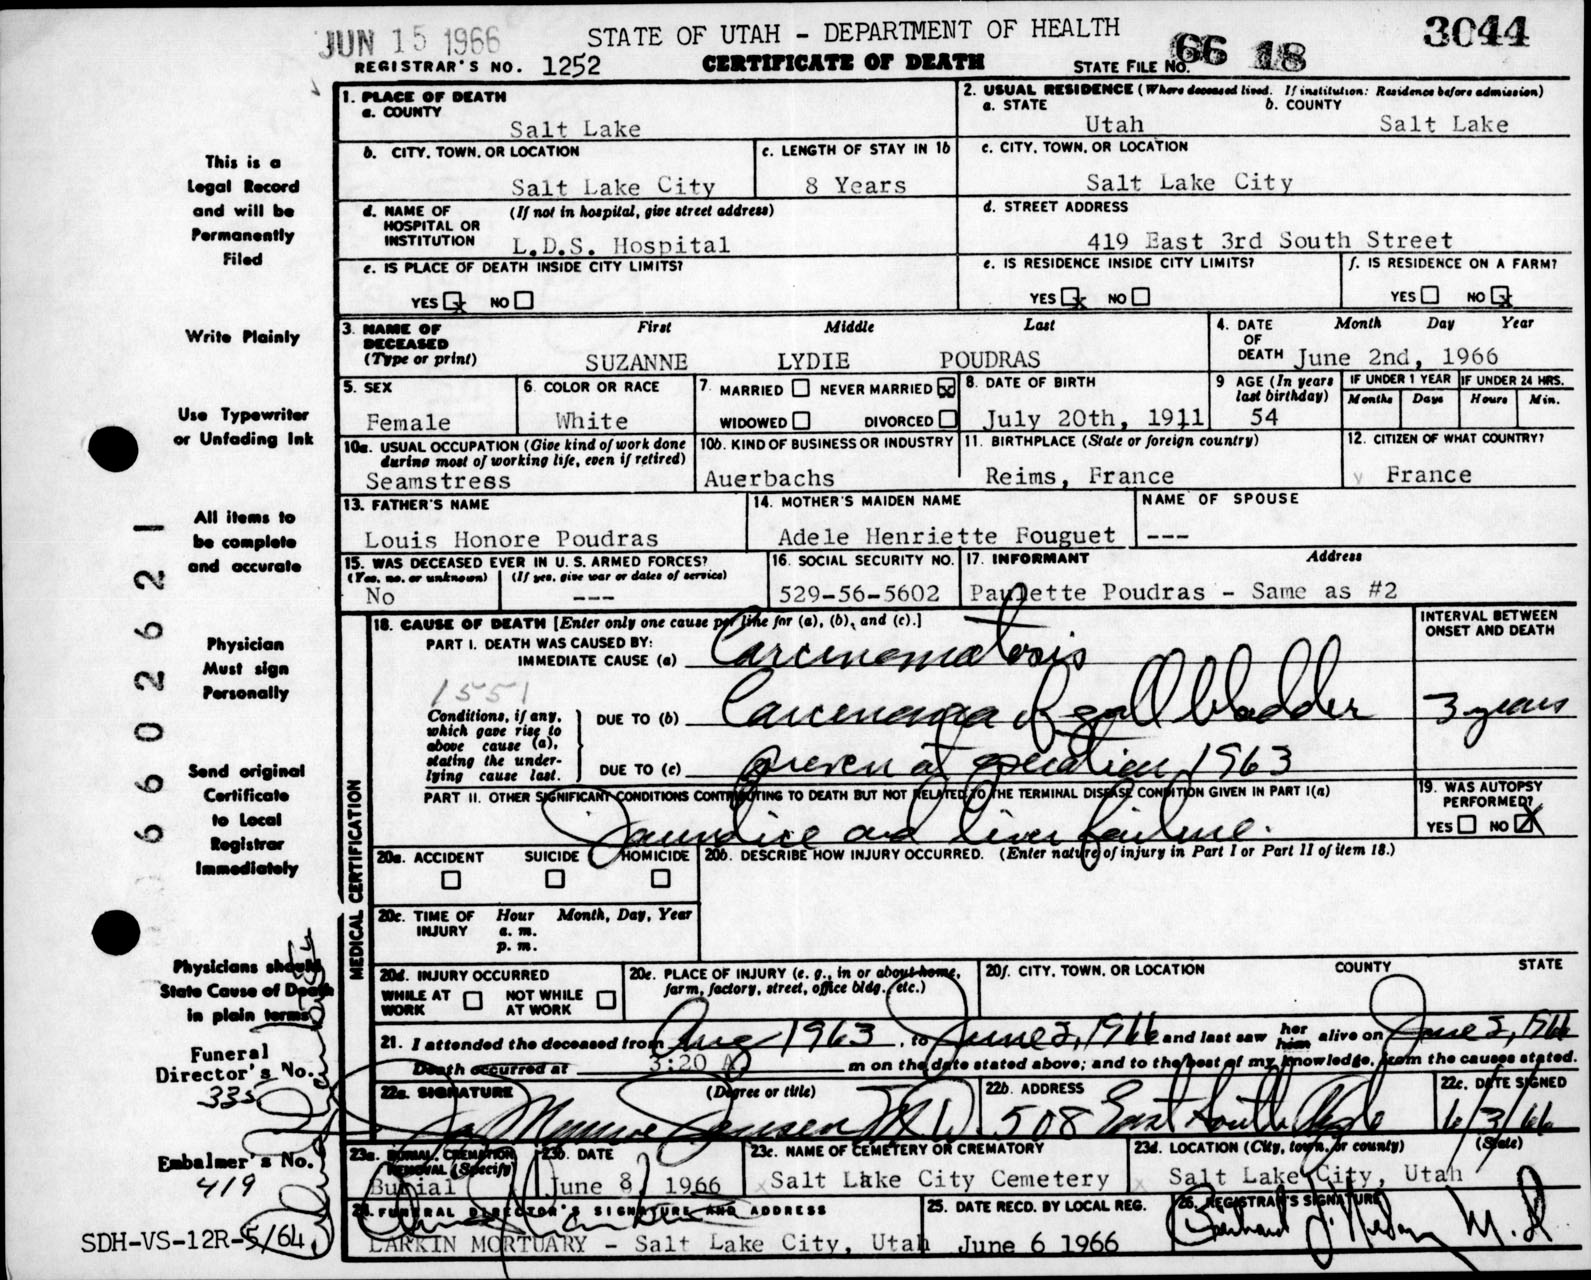 JUN 15 1966
STATE OF UTAH - DEPARTMENT OF HEALTH
3044
REGISTRAR'S NO. 1252
CERTIFICATE OF DEATH
STATE FILE NO. 66 18
1. PLACE OF DEATH
a. COUNTY
Salt Lake
2. USUAL RESIDENCE (Where deceased lived. If institution: Residence before admission)
a. STATE b. COUNTY
Utah Salt Lake
b. CITY, TOWN, OR LOCATION
Salt Lake City
c. LENGTH OF STAY IN 1b
8 Years
c. CITY, TOWN, OR LOCATION
Salt Lake City
d. NAME OF HOSPITAL OR INSTITUTION (If not in hospital, give street address)
L.D.S. Hospital
d. STREET ADDRESS
419 East 3rd South Street
e. IS PLACE OF DEATH INSIDE CITY LIMITS?
YES x NO
e. IS RESIDENCE INSIDE CITY LIMITS?
YES x NO
f. IS RESIDENCE ON A FARM?
YES NO x
3. NAME OF DECEASED (Type or print)
First Middle Last
SUZANNE LYDIE POUDRAS
4. DATE OF DEATH
Month Day Year
June 2nd, 1966
5. SEX
Female
6. COLOR OR RACE
White
7. MARRIED NEVER MARRIED x
WIDOWED DIVORCED
8. DATE OF BIRTH
July 20th, 1911
9 AGE (In years last birthday)
54
IF UNDER 1 YEAR
Months Days
IF UNDER 24 HRS.
Hours Min.
10a. USUAL OCCUPATION (Give kind of work done during most of working life, even if retired)
Seamstress
10b. KIND OF BUSINESS OR INDUSTRY
Auerbachs
11. BIRTHPLACE (State or foreign country)
Reims, France
12. CITIZEN OF WHAT COUNTRY?
France
13. FATHER'S NAME
Louis Honore Poudras
14. MOTHER'S MAIDEN NAME
Adele Henriette Fouguet
NAME OF SPOUSE
---
15. WAS DECEASED EVER IN U. S. ARMED FORCES?
(Yes, no, or unknown) (If yes, give war or dates of service)
No ---
16. SOCIAL SECURITY NO.
529-56-5602
17. INFORMANT Address
Paulette Poudras - Same as #2
18. CAUSE OF DEATH [Enter only one cause per line for (a), (b), and (c).]
INTERVAL BETWEEN ONSET AND DEATH
PART I. DEATH WAS CAUSED BY:
IMMEDIATE CAUSE (a) Carcinomatosis
1551
Conditions, if any, which gave rise to above cause (a), stating the underlying cause last.
DUE TO (b) Carcinoma of gall bladder 3 years
DUE TO (c) proven at operation 1963
PART II. OTHER SIGNIFICANT CONDITIONS CONTRIBUTING TO DEATH BUT NOT RELATED TO THE TERMINAL DISEASE CONDITION GIVEN IN PART I(a)
Jaundice and liver failure.
19. WAS AUTOPSY PERFORMED?
YES NO x
MEDICAL CERTIFICATION
20a. ACCIDENT SUICIDE HOMICIDE
20b. DESCRIBE HOW INJURY OCCURRED. (Enter nature of injury in Part I or Part II of item 18.)
20c. TIME OF INJURY Hour Month, Day, Year
a. m.
p. m.
20d. INJURY OCCURRED
WHILE AT WORK NOT WHILE AT WORK
20e. PLACE OF INJURY (e. g., in or about home, farm, factory, street, office bldg. etc.)
20f. CITY, TOWN, OR LOCATION COUNTY STATE
21. I attended the deceased from Aug 1963, to June 2, 1966 and last saw her him alive on June 2, 1966
Death occurred at 3:20 A m on the date stated above; and to the best of my knowledge, from the causes stated.
22a. SIGNATURE (Degree or title)
J. Monroe Jensen M D.
22b. ADDRESS
508 East South Temple
22c. DATE SIGNED
6/3/66
23a. BURIAL, CREMATION REMOVAL (Specify)
Burial
23b. DATE
June 8, 1966
23c. NAME OF CEMETERY OR CREMATORY
Salt Lake City Cemetery
23d. LOCATION (City, town, or county) (State)
Salt Lake City, Utah
24. FUNERAL DIRECTOR'S SIGNATURE AND ADDRESS
LARKIN MORTUARY - Salt Lake City, Utah
25. DATE RECD. BY LOCAL REG.
June 6 1966
26. REGISTRAR'S SIGNATURE
M.D.
This is a
Legal Record
and will be
Permanently
Filed
Write Plainly
Use Typewriter
or Unfading Ink
All items to
be complete
and accurate
Physician
Must sign
Personally
Send original
Certificate
to Local
Registrar
Immediately
Physicians should
State Cause of Death
in plain terms
Funeral
Director's No.
335
Embalmer's No.
419
SDH-VS-12R-5/64
660262 1